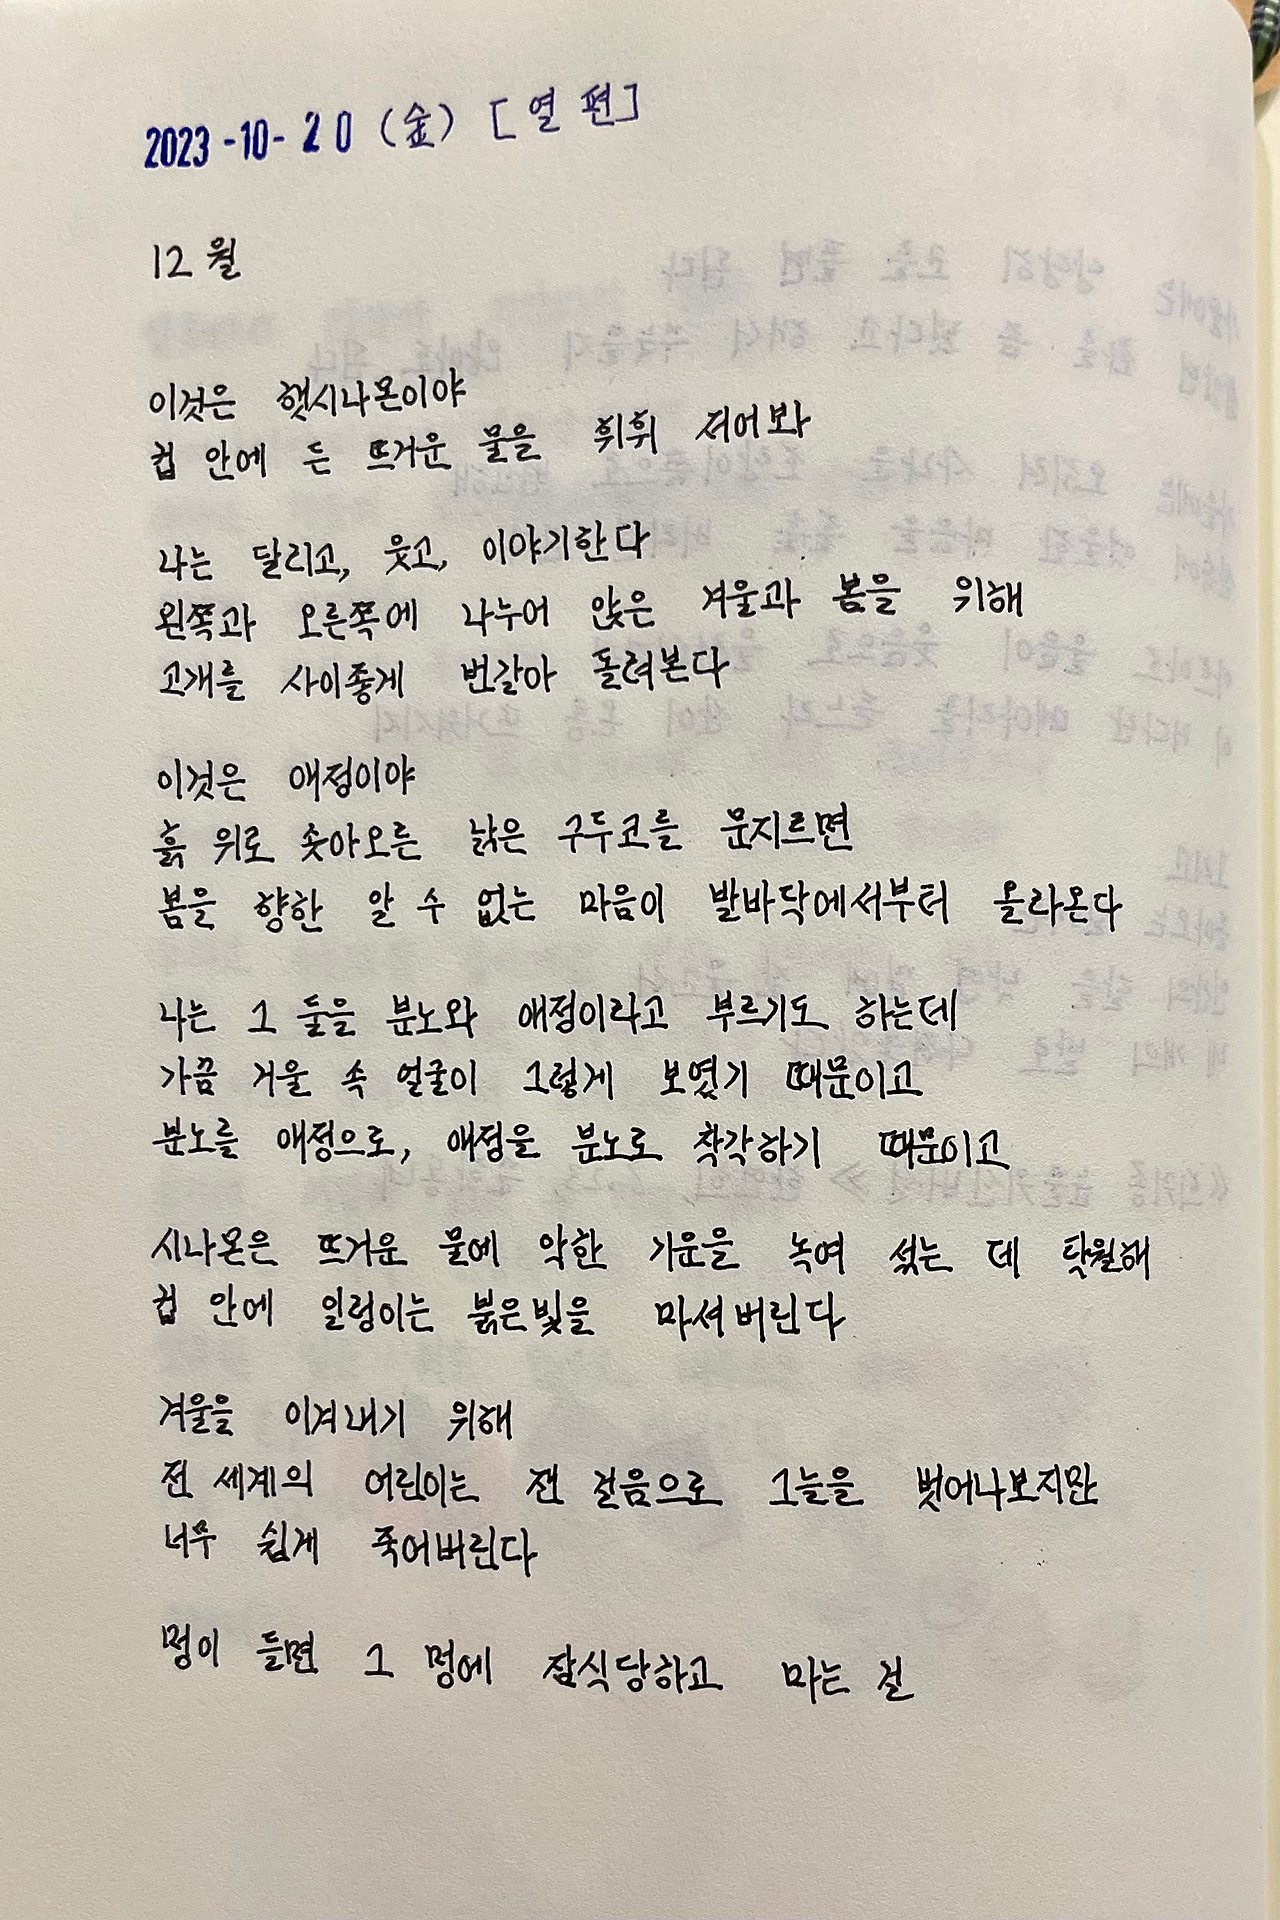 2023-10-20 (金) [열 편]
12월
이것은 햇시나몬이야
컵 안에 든 뜨거운 물을 휘휘 저어봐
나는 달리고, 웃고, 이야기한다
왼쪽과 오른쪽에 나누어 앉은 겨울과 봄을 위해
고개를 사이좋게 번갈아 돌려본다
이것은 애정이야
흙 위로 솟아오른 낡은 구두코를 문지르면
봄을 향한 알 수 없는 마음이 발바닥에서부터 올라온다
나는 그 둘을 분노와 애정이라고 부르기도 하는데
가끔 거울 속 얼굴이 그렇게 보였기 때문이고
분노를 애정으로, 애정을 분노로 착각하기 때문이고
시나몬은 뜨거운 물에 악한 기운을 녹여 섞는 데 탁월해
컵 안에 일렁이는 붉은빛을 마셔버린다
겨울을 이겨내기 위해
전 세계의 어린이는 잰 걸음으로 그늘을 벗어나보지만
너무 쉽게 죽어버린다
멍이 들면 그 멍에 잡식당하고 마는 걸